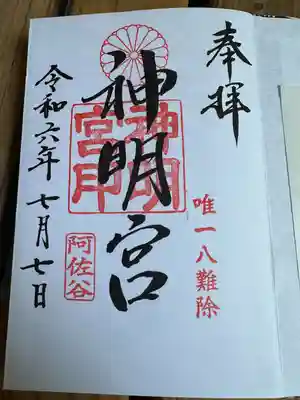 奉拝
唯一八難除
神明宮
神明宮印
阿佐谷
令和六年 七月七日